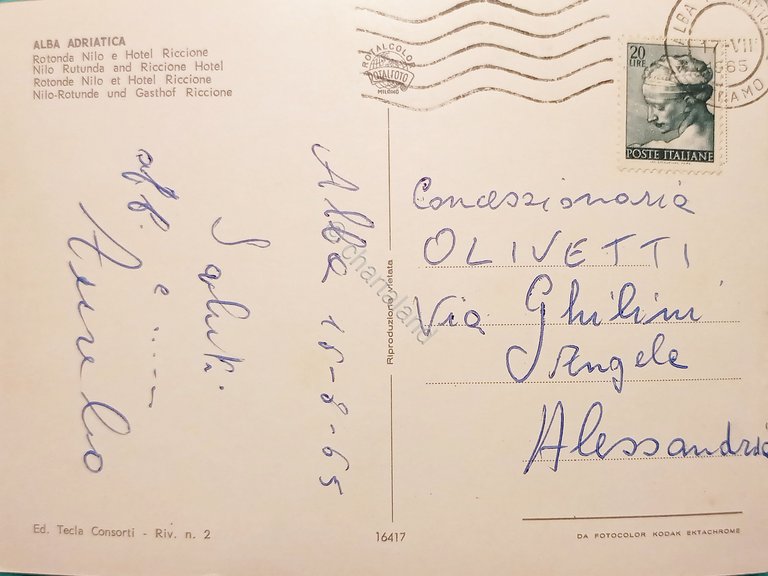 ALBA ADRIATICA
Rotonda Nilo e Hotel Riccione
Nilo Rutunda and Riccione Hotel
Rotonde Nilo et Hotel Riccione
Nilo-Rotunde und Gasthof Riccione
ROTALCOLOR
ROTALFOTO
MILANO
20
LIRE
POSTE ITALIANE
1965
Alba 15-8-65
Saluti
e .....
aff.
Aurelio
Riproduzione vietata
© chartaland
Concessionaria
OLIVETTI
Via Ghilini
Angelo
Alessandria
Ed. Tecla Consorti - Riv. n. 2
16417
DA FOTOCOLOR KODAK EKTACHROME